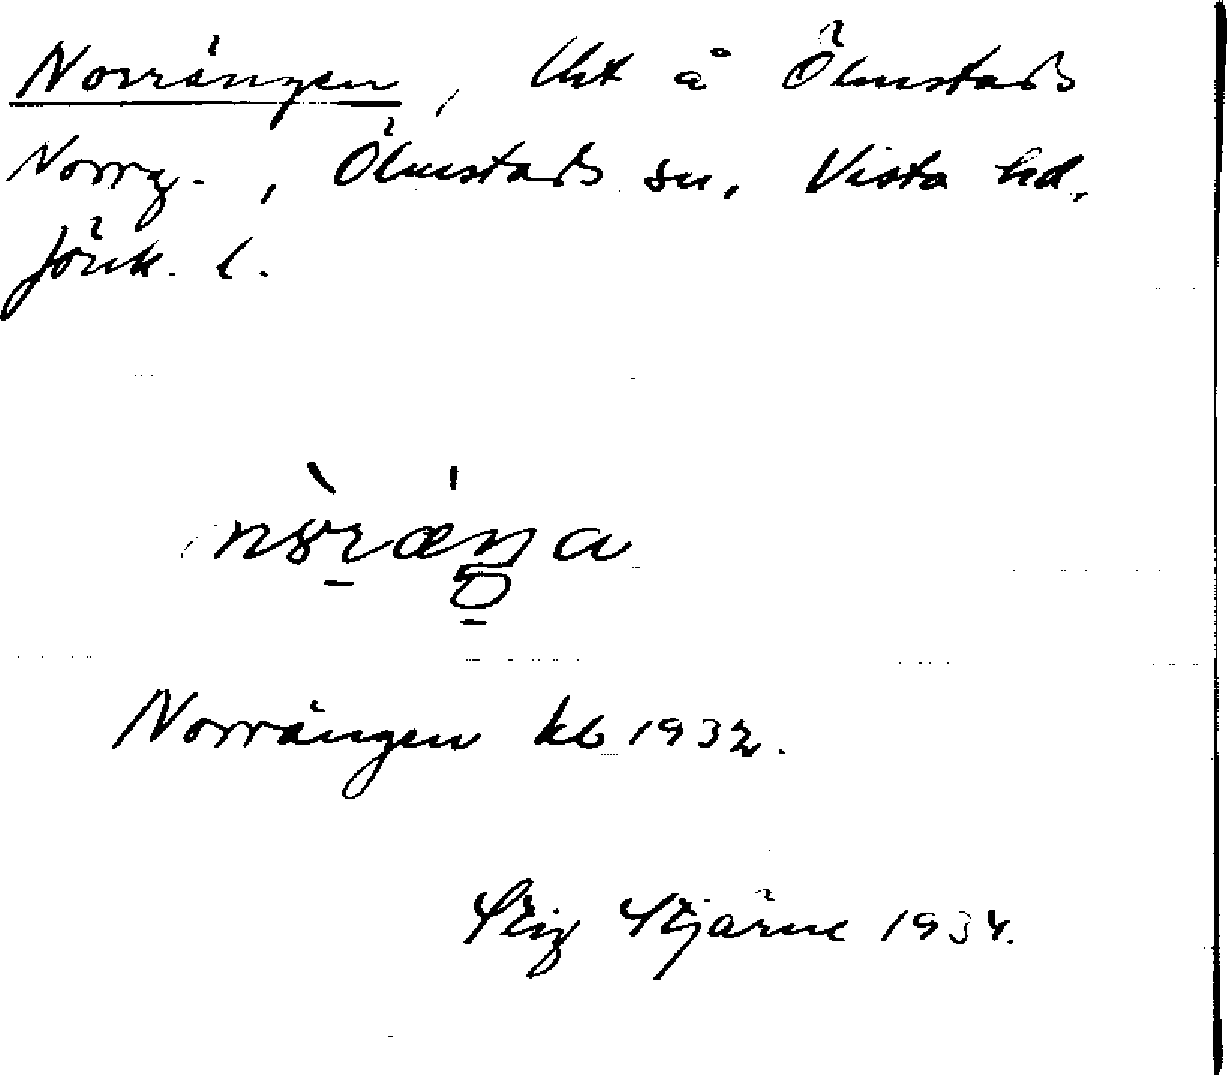 Norrängen, lht å Ölmstads
Norrg., Ölmstads sn, Vista hd,
Jönk. l.
Norrängen kb 1932.
Stig Stjärne 1934.